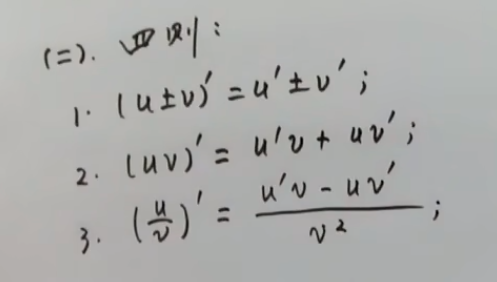 (二). 四则:
1. (u±v)′ = u′±v′;
2. (uv)′ = u′v + uv′;
3. (u/v)′ = (u′v - uv′)/v²;